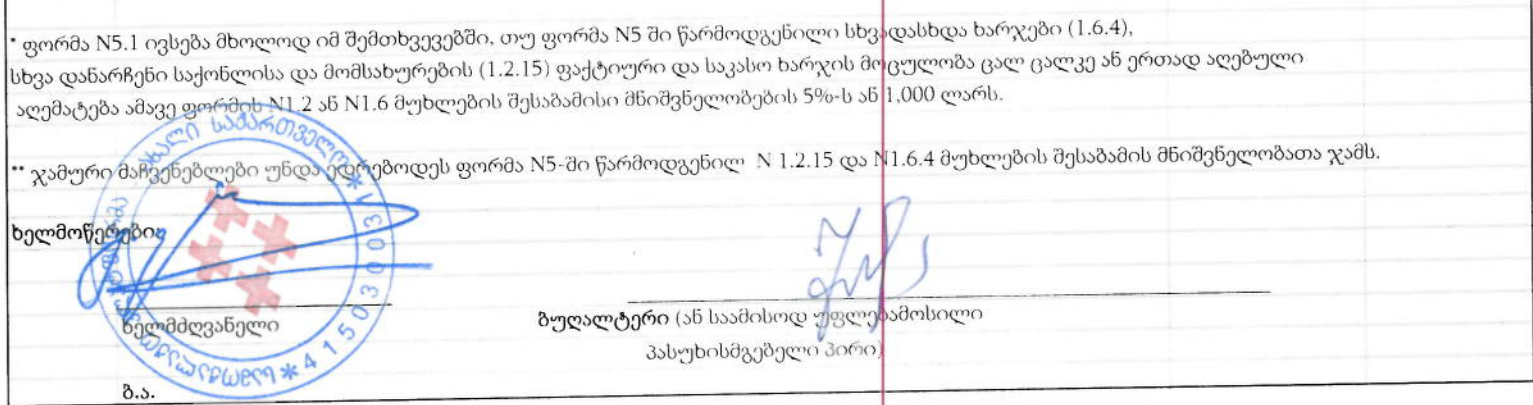 * ფორმა N5.1 ივსება მხოლოდ იმ შემთხვევებში, თუ ფორმა N5 ში წარმოდგენილი სხვადასხდა ხარჯები (1.6.4),
სხვა დანარჩენი საქონლისა და მომსახურების (1.2.15) ფაქტიური და საკასო ხარჯის მოცულობა ცალ ცალკე ან ერთად აღებული
აღემატება ამავე ფორმის N1.2 ან N1.6 მუხლების შესაბამისი მნიშვნელობების 5%-ს ან 1,000 ლარს.
** ჯამური მაჩვენებლები უნდა ედრებოდეს ფორმა N5-ში წარმოდგენილ N 1.2.15 და N1.6.4 მუხლების შესაბამის მნიშვნელობათა ჯამს.
ხელმოწერები:
ხელმძღვანელი
ბუღალტერი (ან საამისოდ უფლებამოსილი
პასუხისმგებელი პირი)
ბ.ა.
ახალი საქართველო